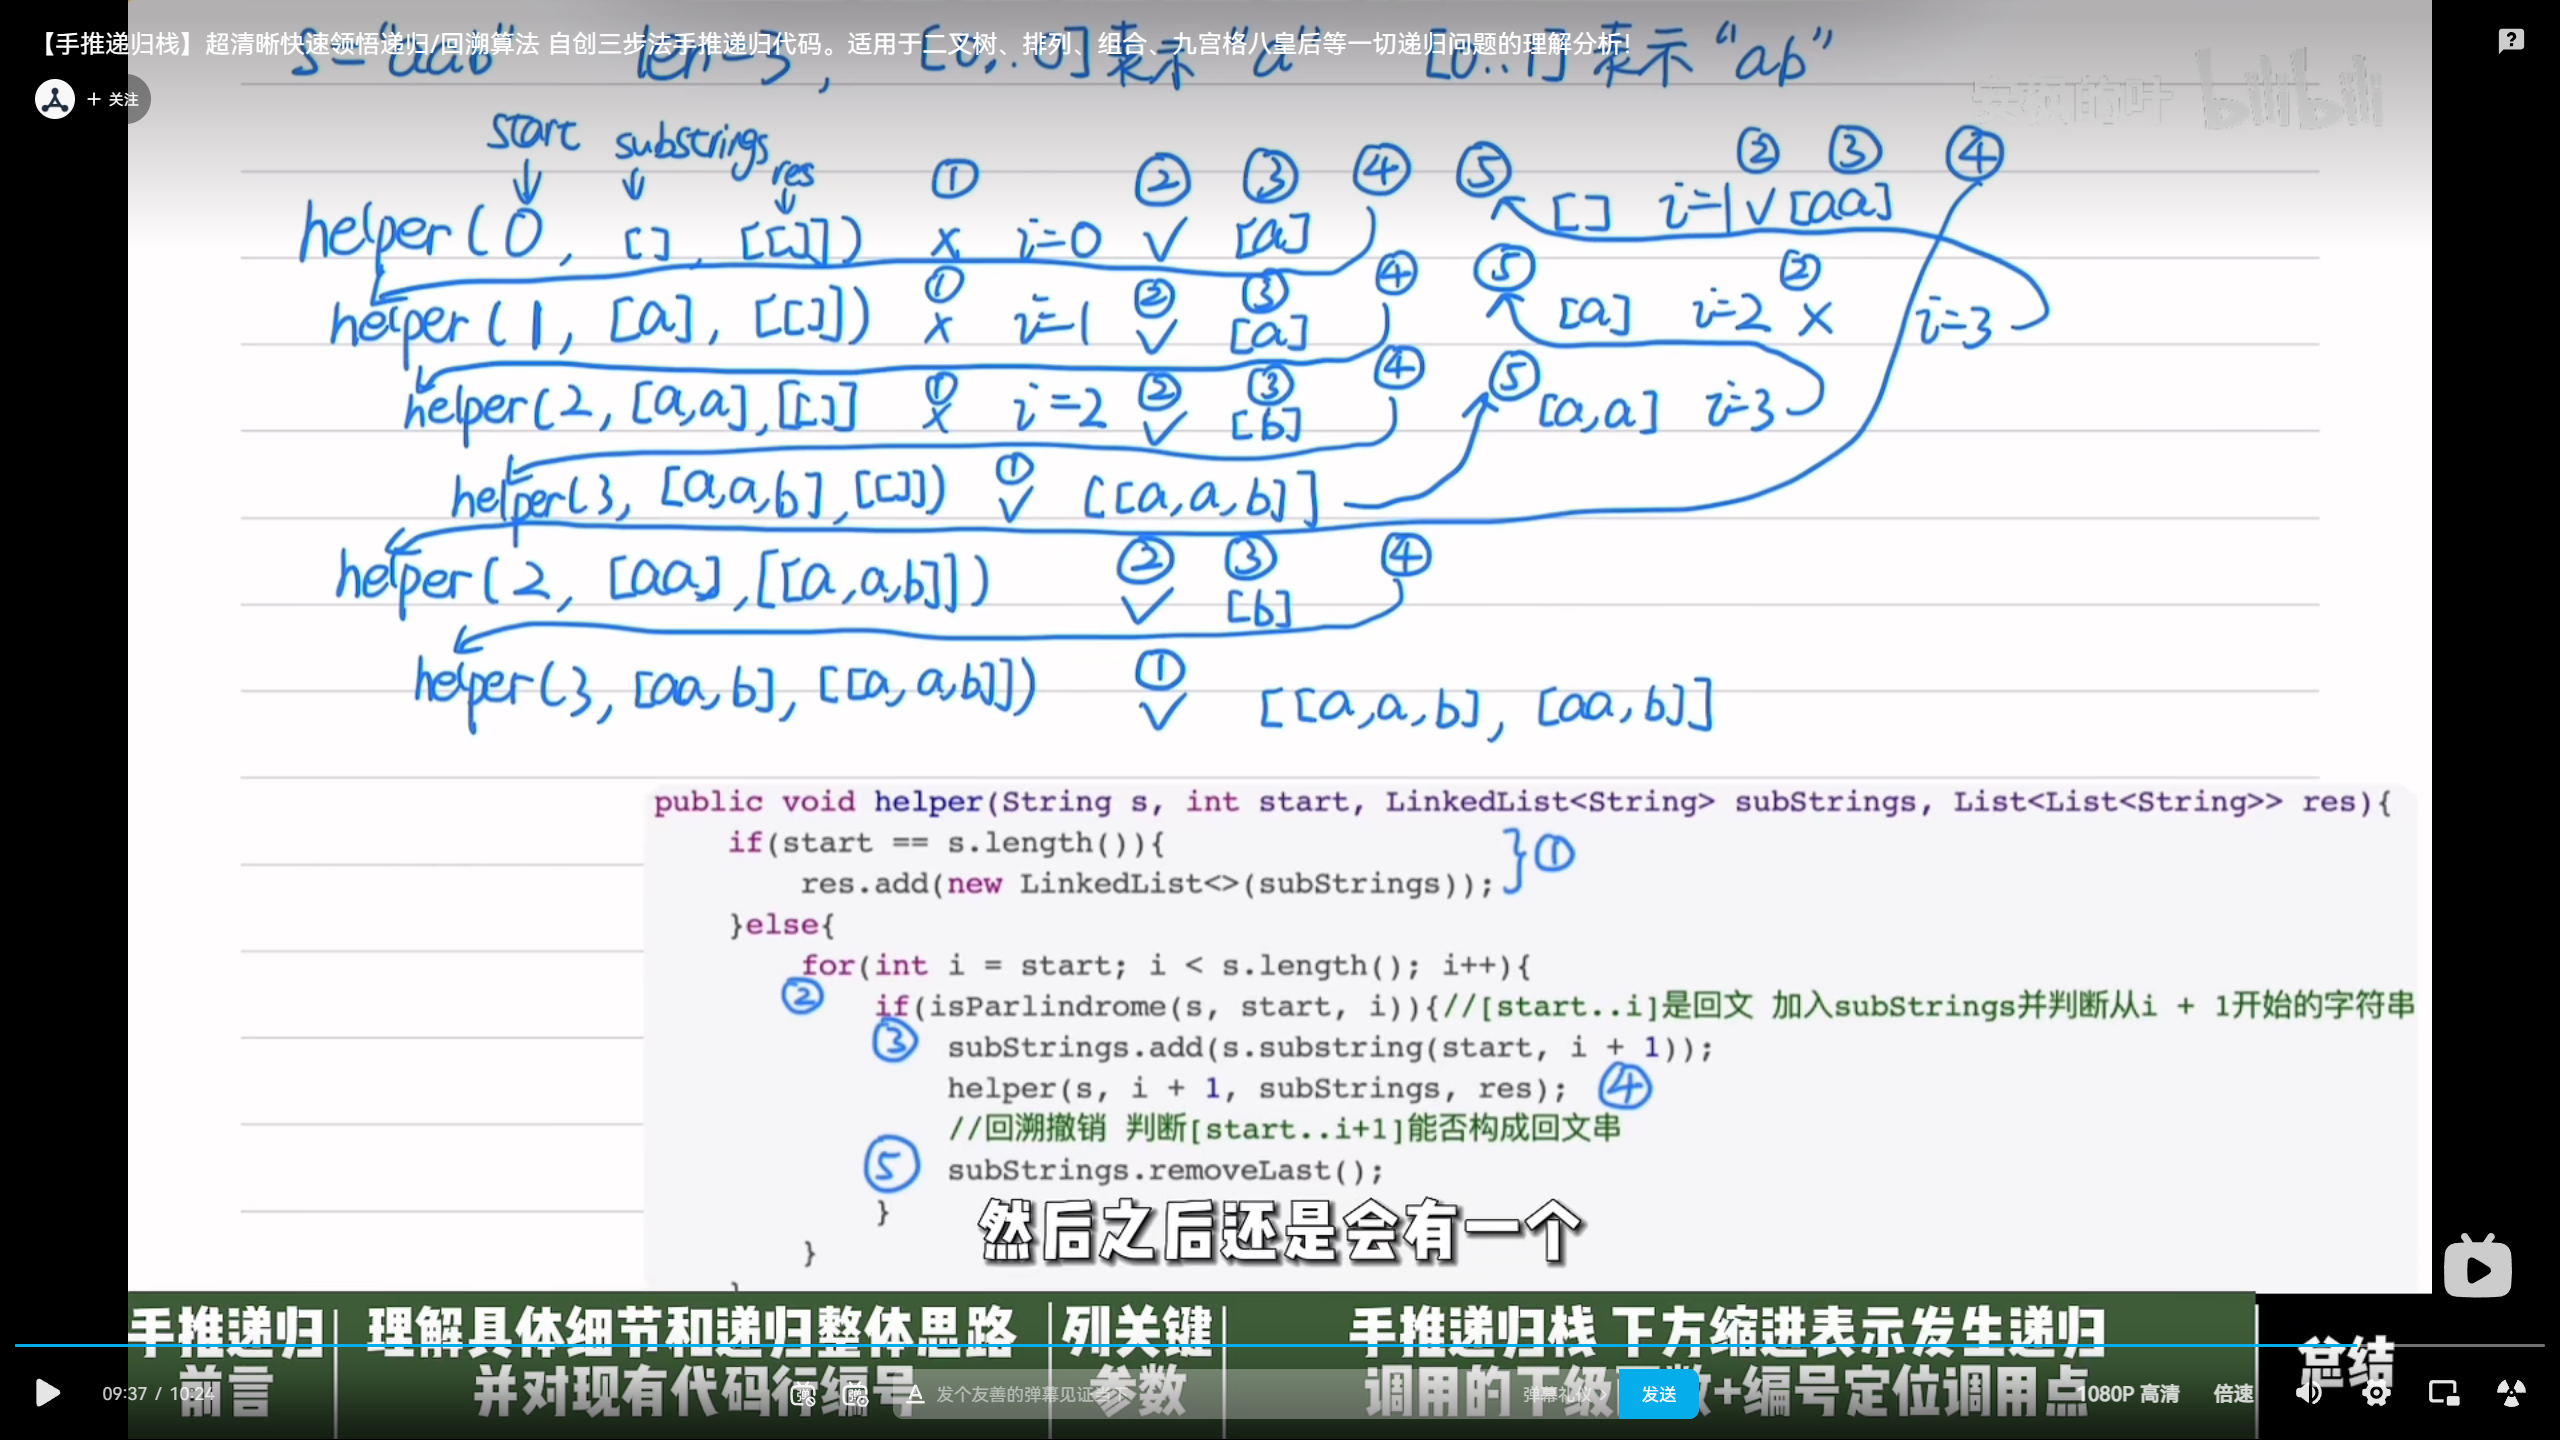 【手推递归栈】超清晰快速领悟递归/回溯算法 自创三步法手推递归代码。适用于二叉树、排列、组合、九宫格八皇后等一切递归问题的理解分析!
s="aab" len=3, [0..0]表示"a" [0..1]表示"ab"
+ 关注
bilibili
start substrings res
① ② ③ ④ ⑤ ② ③ ④
helper(0, [], [[]]) × i=0 ✓ [a] [] i=1 ✓ [aa]
① ② ③ ④ ⑤ ②
helper(1, [a], [[]]) × i=1 ✓ [a] [a] i=2 × i=3
① ② ③ ④ ⑤
helper(2, [a,a],[[]] × i=2 ✓ [b] [a,a] i=3
①
helper(3, [a,a,b],[[]]) ✓ [[a,a,b]]
② ③ ④
helper(2, [aa],[[a,a,b]]) ✓ [b]
①
helper(3, [aa,b], [[a,a,b]]) ✓ [[a,a,b], [aa,b]]
public void helper(String s, int start, LinkedList<String> subStrings, List<List<String>> res){
if(start == s.length()){
res.add(new LinkedList<>(subStrings)); ①
}else{
for(int i = start; i < s.length(); i++){
② if(isParlindrome(s, start, i)){//[start..i]是回文 加入subStrings并判断从i + 1开始的字符串
③ subStrings.add(s.substring(start, i + 1));
helper(s, i + 1, subStrings, res); ④
//回溯撤销 判断[start..i+1]能否构成回文串
⑤ subStrings.removeLast();
}
}
然后之后还是会有一个
手推递归 前言
理解具体细节和递归整体思路
并对现有代码行编号
列关键
参数
手推递归栈 下方缩进表示发生递归
调用的下级函数+编号定位调用点
总结
09:37 / 10:24
发个友善的弹幕见证当下
弹幕礼仪 >
发送
1080P 高清
倍速